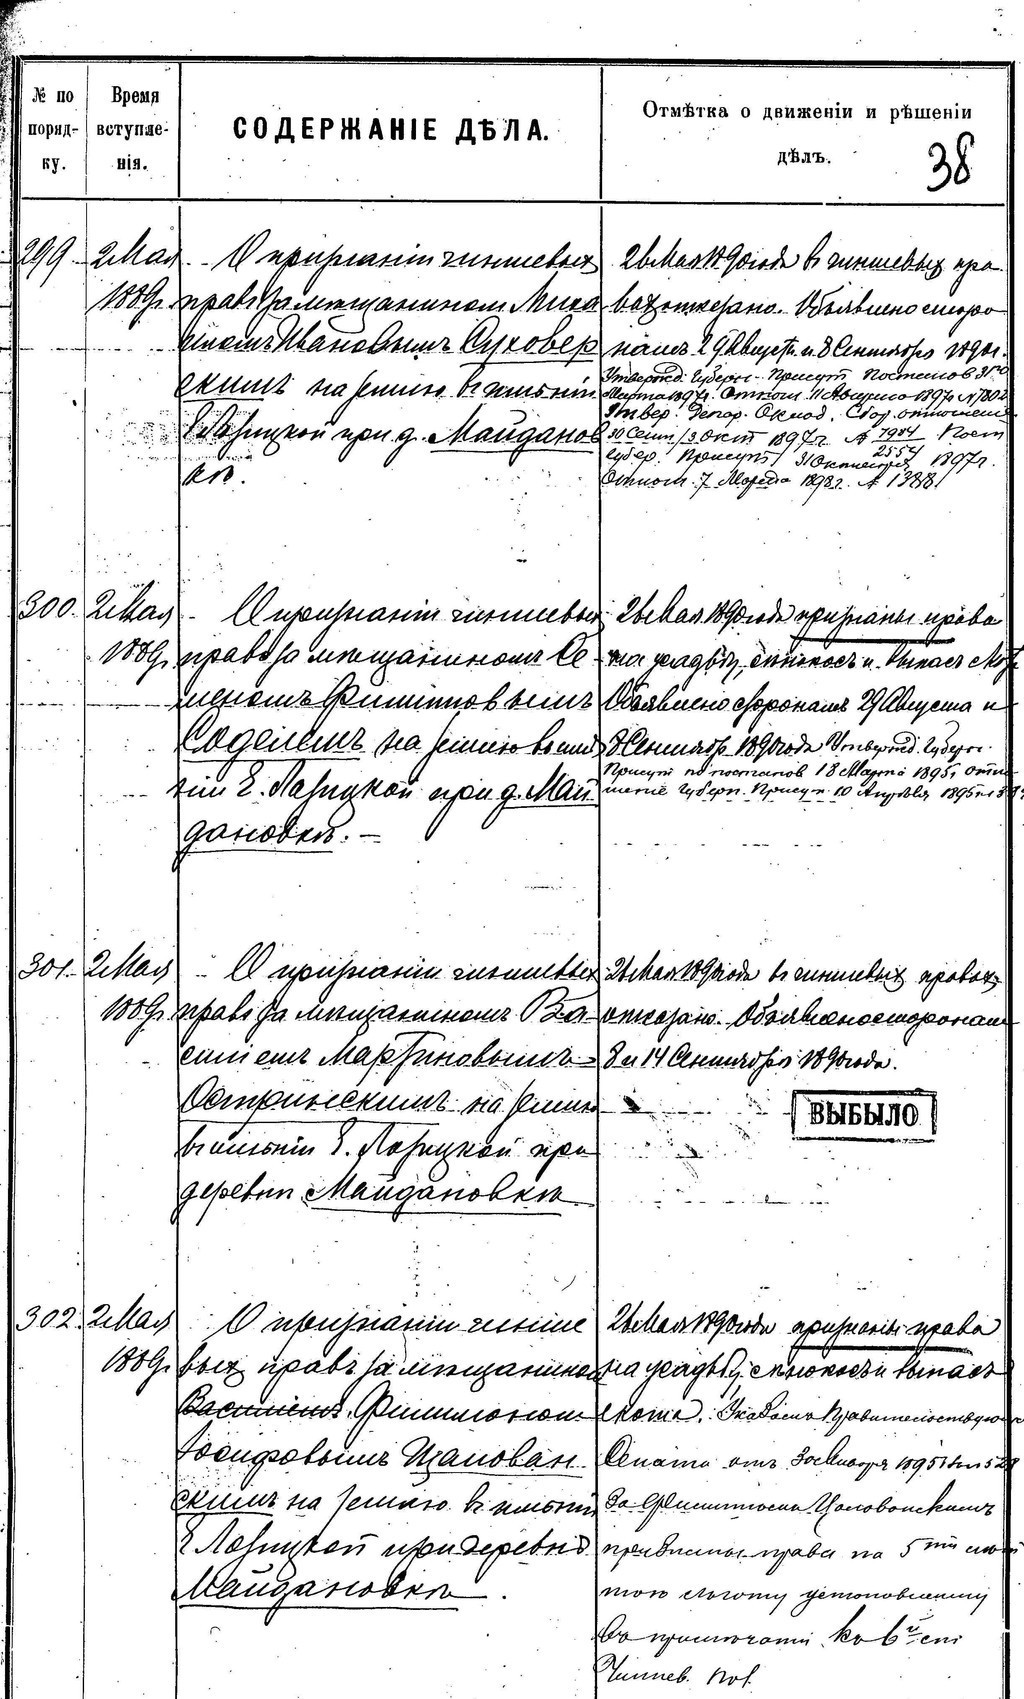 № по поряд- ку.
Время вступле- нія.
СОДЕРЖАНІЕ ДѢЛА.
Отмѣтка о движеніи и рѣшеніи
дѣлъ.
38
299.
2 Мая
1889г.
О признаніи чиншевых
правъ за мѣщанином Миха
иломъ Ивановымъ Суховер
скимъ на землю въ имѣніи
Е. Лозицкой при д. Майданов
кѣ.
26 Мая 1890 года въ чиншевых пра
вах отказано. Объявлено сторо
намъ 29 Августа и 8 Сентября 1890г.
Утвержд. Губерн. Присут. Постанов 31го
Марта 1897г. Отнош. 11 Августа 1897г. №
Утвер. Депар. Оклад. Сбор. отношен
30 Сент/3 Окт 1897г. № 7984/2554 Пост
Губер. Присут. 31 Октября 1897г.
Отнош. 7 Марта 1898г. № 1388
300.
2 Мая
1889г.
О признаніи чиншевых
правъ за мѣщанином Се
меномъ Филипповымъ
на землю въ имѣ
ніи Е. Лозицкой при д. Май
дановкѣ. —
26 Мая 1890 года признаны права
на усадьбу, сѣнокосъ и выпасъ
Объявлено сторонамъ 29 Августа и
8 Сентябр. 1890 года Утвержд. Губерн.
Присут по постанов 18 Марта 1895г. отно
шеніе Губерн. Присут. 10 Апрѣля 1895г.
301.
2 Мая
1889г.
О признаніи чиншевых
правъ за мѣщанином Ва-
силіемъ Мартиновымъ
на землю
въ имѣніи Е. Лозицкой при
деревни Майдановкѣ
26 Мая 1890 года въ чиншевых правах
отказано. Объявлено сторонам
8 и 14 Сентября 1890 года.
ВЫБЫЛО
302.
2 Мая
1889г.
О признаніи чинше
вых правъ за мѣщанином
Василіемъ Филимоном
Іосифовымъ Цалован
скимъ на землю въ имѣніи
Е Лозицкой при деревнѣ
Майдановкѣ
26 Мая 1890 года признаны права
на усадьбу, сѣнокосъ и выпасъ
скота. Указомъ Правительствующ
Сената отъ 30 Января 1895г. за №
за Цаловонскимъ
права на 5ти
тнюю льготу установленну
въ примѣчаніи къ 6й ст
Чиншев. Пол.